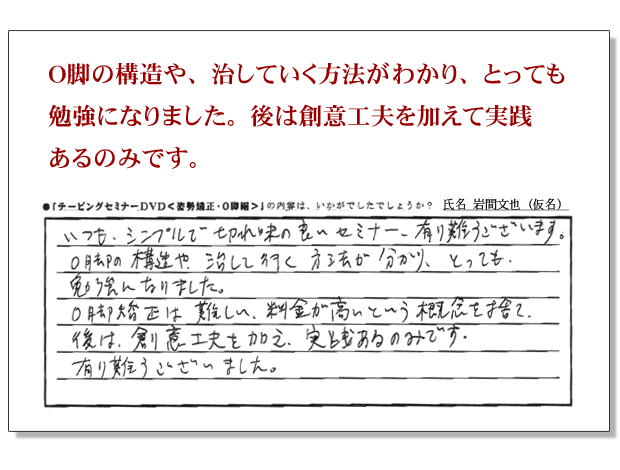 O脚の構造や、治していく方法がわかり、とっても
勉強になりました。後は創意工夫を加えて実践
あるのみです。
●「テーピングセミナーDVD<姿勢矯正・O脚編>」の内容は、いかがでしたでしょうか? 氏名 岩間文也（仮名）
いつも、シンプルで切れ味の良いセミナー、有り難うございます。
O脚の構造や、治して行く方法が分かり、とっても、
勉強になりました。
O脚矯正は難しい、料金が高いという概念を捨て、
後は、創意工夫を加え、実践あるのみです。
有り難うございました。